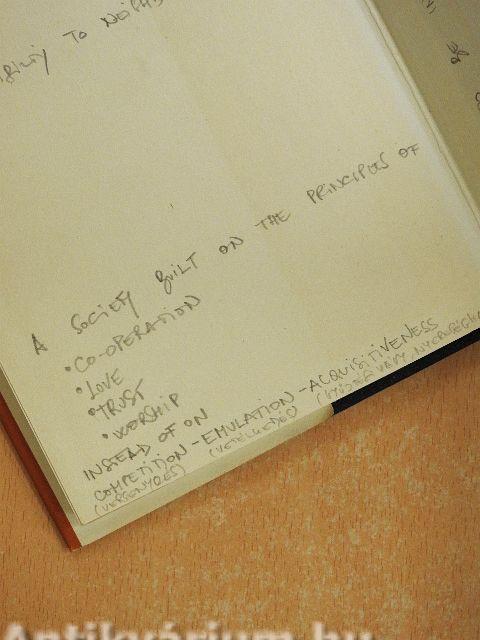 TO
A SOCIETY BUILT ON THE PRINCIPLES OF
• CO-OPERATION
• LOVE
• TRUST
• WORSHIP
INSTEAD OF ON
COMPETITION - EMULATION - ACQUISITIVENESS
(VERSENGÉS) (VETÉLKEDÉS)
Antikvárium.hu